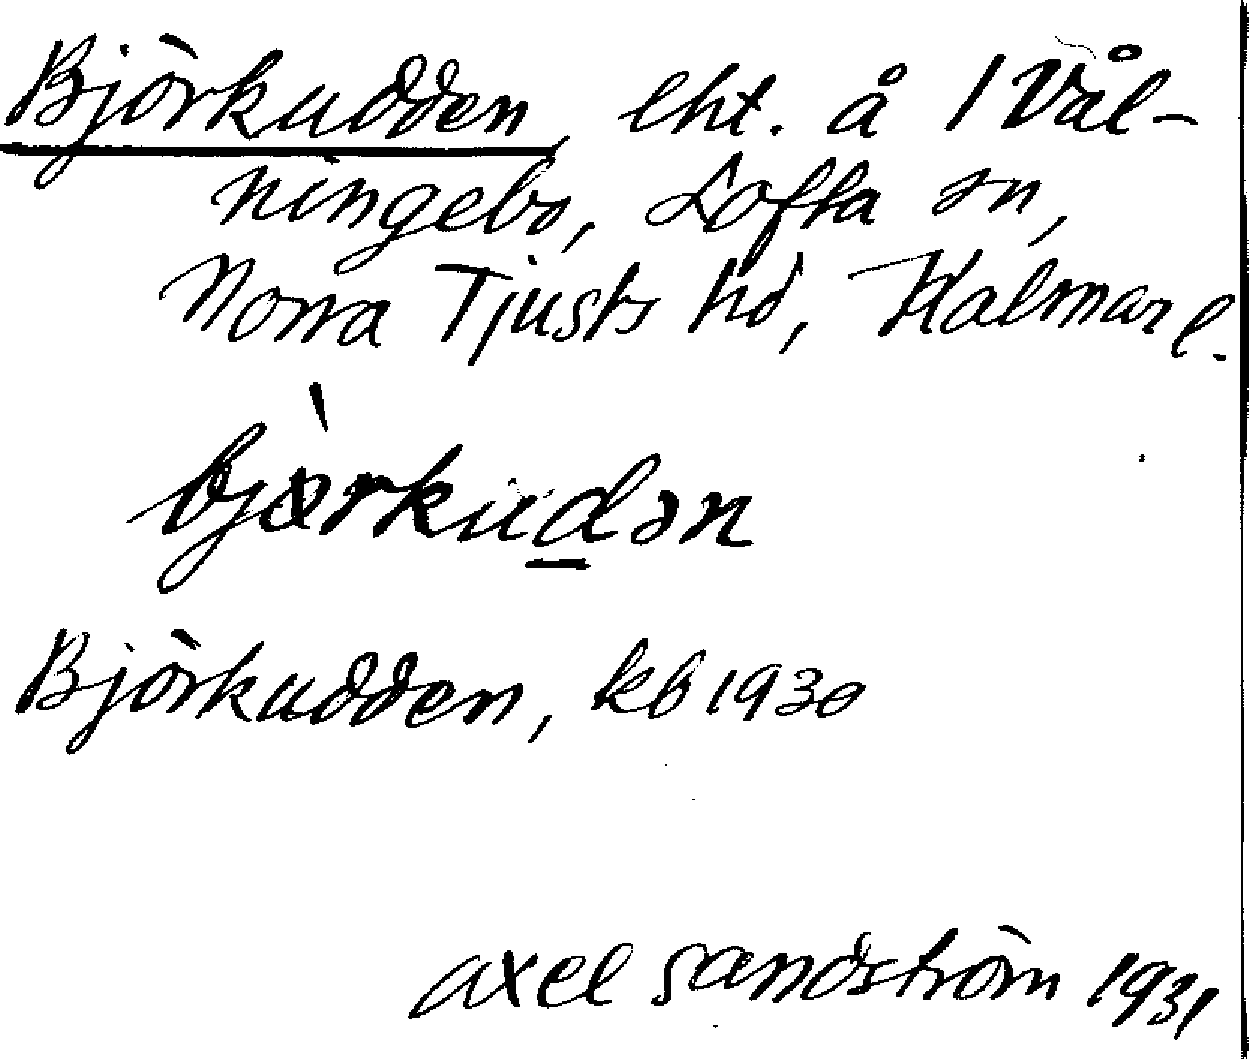 Björkudden, lht. å 1 Vål-
ningebo, Lofta sn,
Norra Tjusts hd, Kalmar l.
bjɵ̀rkudən
Björkudden, kb 1930
Axel Sandström 1931